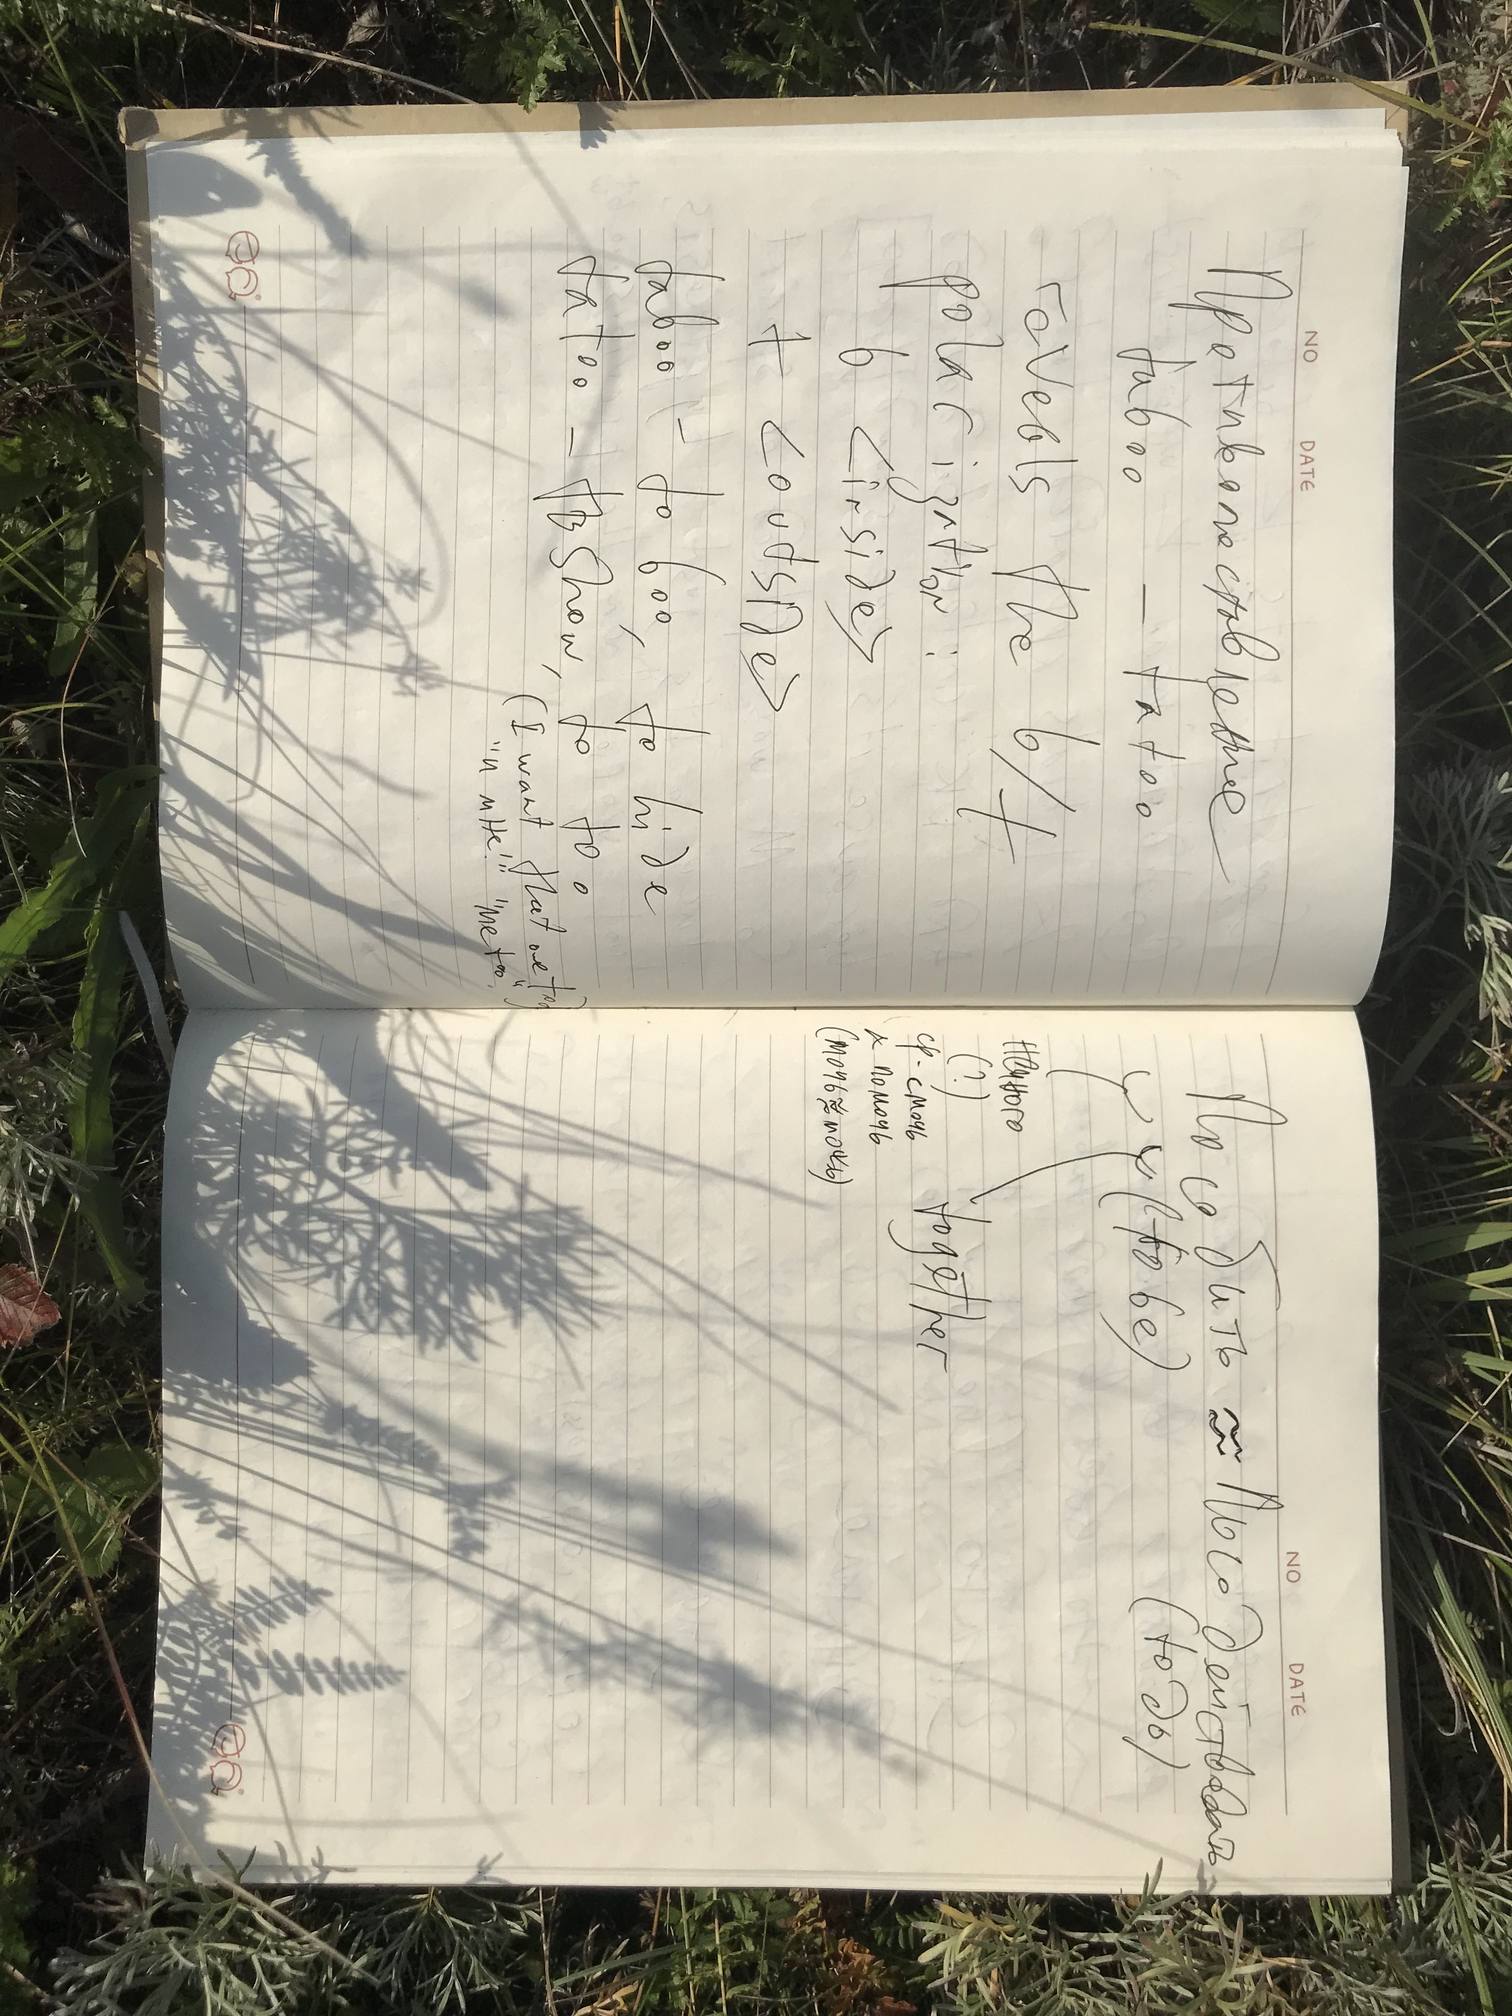 NO DATE
Противопоставление
taboo – tatoo
revebls the b/t
polarization:
b <inside>
t <outside>
taboo – to boo, to hide
tatoo – to show, to too
(I want that one too)
"и мне!!" "me too"
NO DATE
Пособить ≈ Посодействовать
(to be) (to до)
немного
(?)
together
ср. смочь
к помочь
(мочь ≈ мочь)